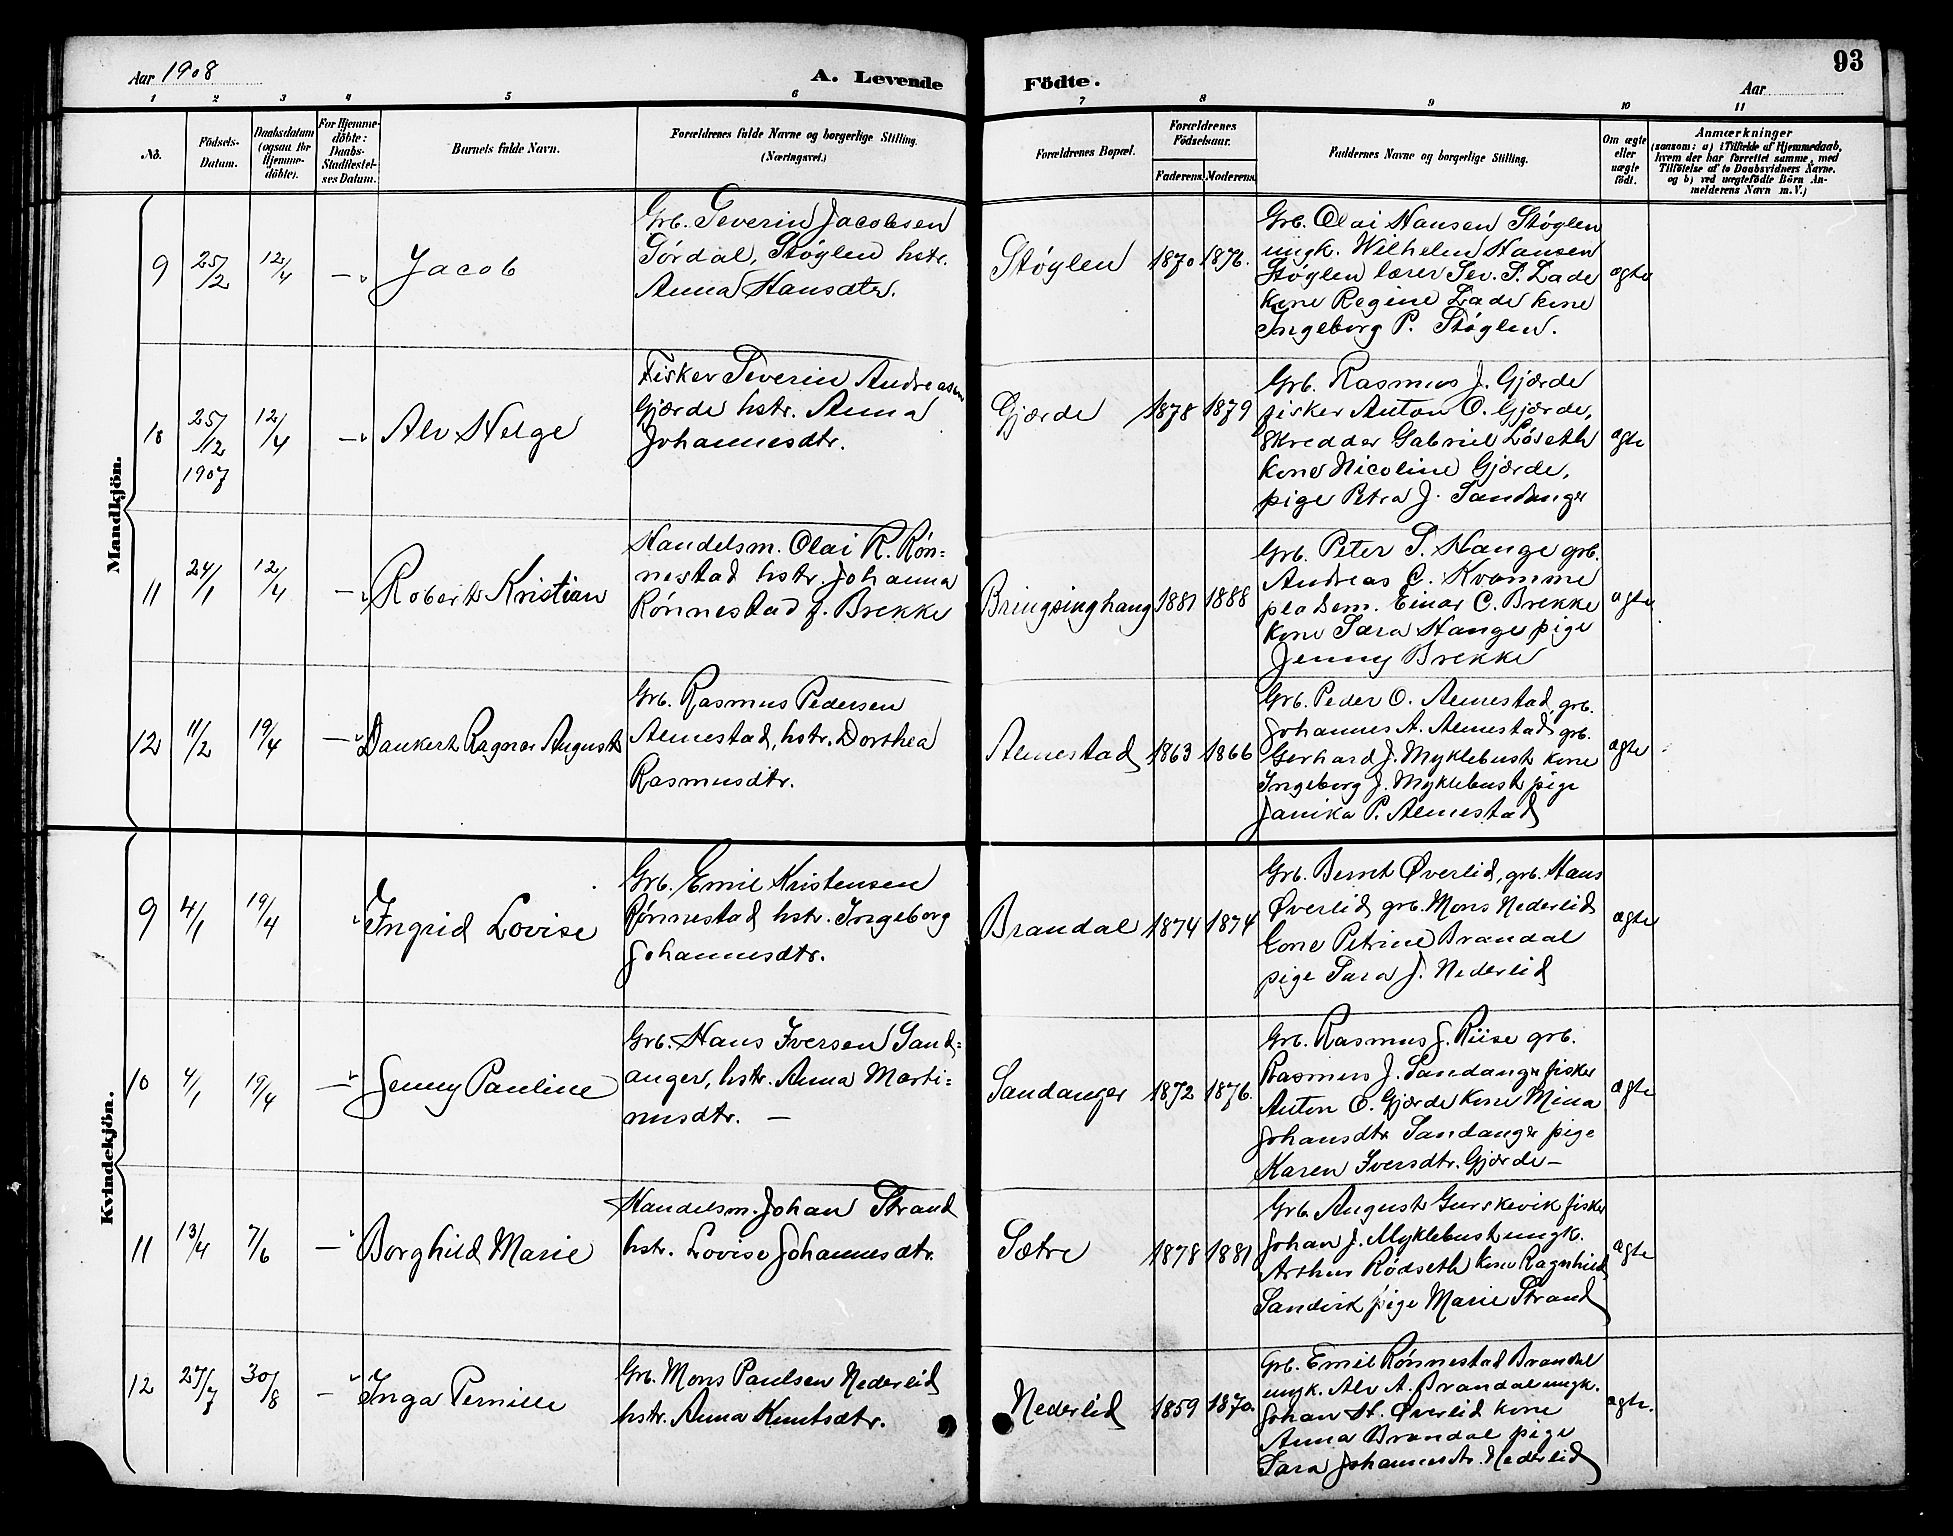 Aar 1908
A. Levende
Födte.
93
Aar
1 2 3 4 5 6 7 8 9 10 11
No.
Födsels-
Datum.
Daabsdatum
(ogsaa for
Hjemme-
döbte).
For Hjemme-
döbte:
Daabs-
Stadfestel-
ses Datum.
Barnets fulde Navn.
Forældrenes fulde Navne og borgerlige Stilling.
(Næringsvei.)
Forældrenes Bopæl.
Forældrenes
Födselsaar.
Faderens. Moderens.
Faddernes Navne og borgerlige Stilling.
Om ægte
eller
uægte
födt.
Anmærkninger
(saasom: a) i Tilfælde af Hjemmedaab,
hvem der har forrettet samme, med
Tilföielse af to Daabsvidners Navne.
og b) ved uægtefödte Börn An-
melderens Navn m. V.)
Mandkjön.
9 25/12 12/4 — Jacob
Grb. Severin Jacobsen
Sørdal, Støylen hstr.
Anna Hansdtr.
Støylen 1870 1876.
Grb. Olai Hansen Støylen
ungk. Wilhelm Hansen
Støylen lærer Sev. S. Lade
kone Regine Lade kone
Ingeborg P. Støylen.
ægte
10 25/12 1907 12/4 — Alv Helge
Fisker Severin Andreassen
Gjærde hstr. Anna
Johannesdtr.
Gjærde 1878 1879
Grb. Rasmus J. Gjærde
fisker Anton O. Gjærde,
skredder Gabriel Løseth
kone Nicoline Gjærde,
pige Petra J. Sandanger
ægte
11 24/1 12/4 — Robert Kristian
Handelsm. Olai R. Røn-
nestad hstr. Johanna
Rønnestad f. Brekke
Bringsinghaug 1881 1888
Grb. Peter S. Hauge grb.
Andreas C. Kvamme
Einar C. Brekke
kone Sara Hauge pige
Jenny Brekke
ægte
12 11/2 19/4 — Dankert Ragnar August
Grb. Rasmus Pedersen
Almestad, hstr. Dorthea
Rasmusdtr.
Almestad 1863 1866
Grb. Peder O. Almestad, grb.
Johannes A. Almestad, grb.
Gerhard J. Myklebust kone
Ingeborg J. Myklebust pige
Janika P. Almestad
ægte
Kvindekjön.
9 4/1 19/4 Ingrid Lovise
Grb. Emil Kristensen
Rønnestad hstr. Ingeborg
Johannesdtr.
Brandal 1874 1874
Grb. Bernt Øverlid, grb. Hans
Øverlid grb. Mons Nederlid
kone Petrine Brandal
pige Sara J. Nederlid
ægte
10 4/1 19/4 — Jenny Pauline
Grb. Hans Iversen Sand-
anger, hstr. Anna Marti-
nusdtr. —
Sandanger 1872 1876.
Grb. Rasmus J. Riise grb.
Rasmus J. Sandanger fisker
Anton O. Gjærde kone Mina
Johansdtr Sandanger pige
Karen Iversdtr. Gjærde —
ægte
11 13/4 7/6 — Borghild Marie
Handelsm. Johan Strand
hstr. Lovise Johannesdtr.
Sætre 1878 1881
Grb. August Gurskevik fisker
Johan J. Myklebust ungk.
Arthur Rødseth kone Ragnhild
Sandvik pige Marie Strand
ægte
12 27/7 30/8 — Inga Pernille
Grb. Mons Paulsen Nederlid
hstr. Anna Knutsdtr.
Nederlid 1859 1870.
Grb. Emil Rønnestad Brandal
ungk. Alv A. Brandal ungk.
Johan H. Øverlid kone
Anna Brandal pige
Sara Johannesdtr. Nederlid
ægte.